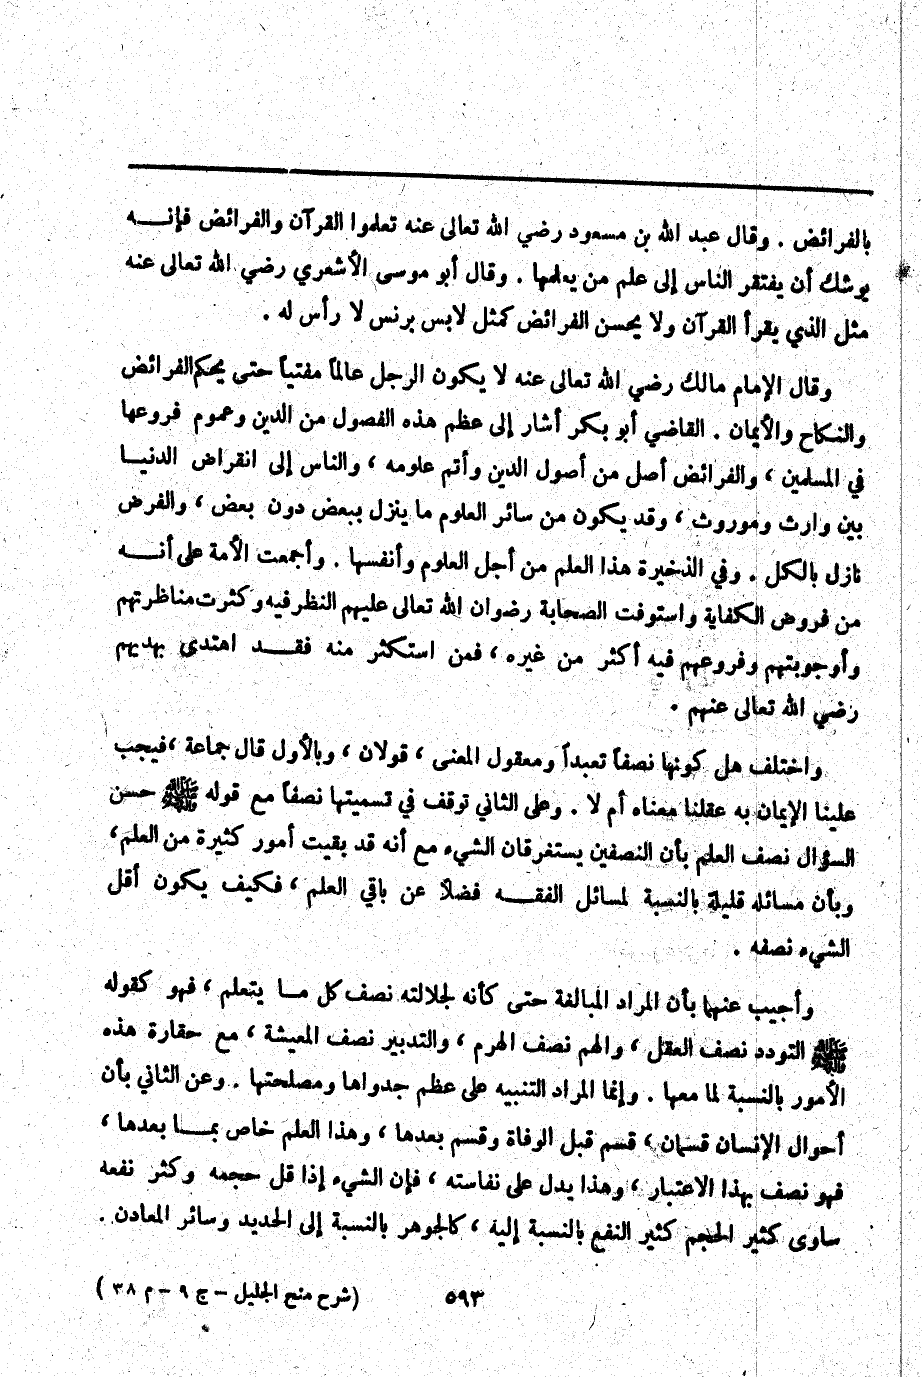 بالفرائض . وقال عبد الله بن مسعود رضي الله تعالى عنه تعلموا القرآن والفرائض فإنـــه
يوشك أن يفتقر الناس إلى علم من يعلمها . وقال أبو موسى الأشعري رضي الله تعالى عنه
مثل الذي يقرأ القرآن ولا يحسن الفرائض كمثل لابس برنس لا رأس له .
وقال الإمام مالك رضي الله تعالى عنه لا يكون الرجل عالماً مفتياً حتى يحكم الفرائض
والنكاح والأيمان . القاضي أبو بكر أشار إلى عظم هذه الفصول من الدين وعموم فروعها
في المسلمين ، والفرائض أصل من أصول الدين وأتم علومه ، والناس إلى انقراض الدنيـــا
بين وارث وموروث ، وقد يكون من سائر العلوم ما ينزل ببعض دون بعض ، والفرض
نازل بالكل . وفي الذخيرة هذا العلم من أجل العلوم وأنفسها . وأجمعت الأمة على أنـــه
من فروض الكفاية واستوفت الصحابة رضوان الله تعالى عليهم النظر فيه وكثرت مناظرتهم
وأوجوبتهم وفروعهم فيه أكثر من غيره ، فمن استكثر منه فقـــد اهتدى بهديهم
رضي الله تعالى عنهم .
واختلف هل كونها نصفاً تعبداً ومعقول المعنى ، قولان ، وبالأول قال جماعة ، فيجب
علينا الإيمان به عقلنا معناه أم لا . وعلى الثاني توقف في تسميتها نصفاً مع قوله ﷺ حسن
السؤال نصف العلم بأن النصفين يستغرقان الشيء مع أنه قد بقيت أمور كثيرة من العلم ،
وبأن مسائله قليلة بالنسبة لمسائل الفقـــه فضلاً عن باقي العلم ، فكيف يكون أقل
الشيء نصفه .
وأجيب عنهما بأن المراد المبالغة حتى كأنه لجلالته نصف كل مـــا يتعلم ، فهو كقوله
ﷺ التودد نصف العقل ، والهم نصف الهرم ، والتدبير نصف المعيشة ، مع حقارة هذه
الأمور بالنسبة لما معها . وإنما المراد التنبيه على عظم جدواها ومصلحتها . وعن الثاني بأن
أحوال الإنسان قسمان ، قسم قبل الوفاة وقسم بعدها ، وهذا العلم خاص بمـــا بعدها ،
فهو نصف بهذا الاعتبار ، وهذا يدل على نفاسته ، فإن الشيء إذا قل حجمه وكثر نفعه
ساوى كثير الحجم كثير النفع بالنسبة إليه ، كالجوهر بالنسبة إلى الحديد وسائر المعادن .
٥٩٣ (شرح منح الجليل – ج ٩ – م ٣٨ )